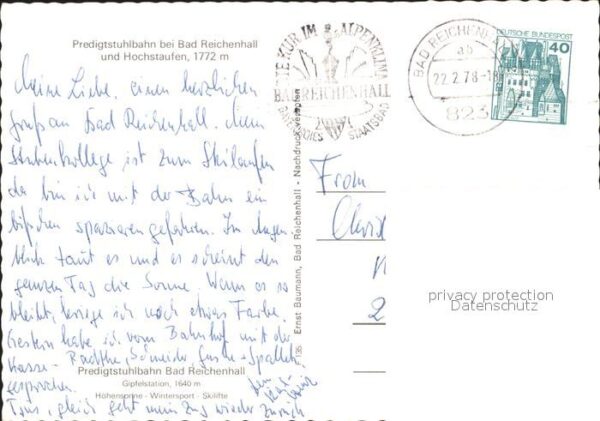 Predigtstuhlbahn bei Bad Reichenhall
und Hochstaufen, 1772 m
Meine Liebe, einen herzlichen
gruß aus Bad Reichenhall. Mein
Stubenkollege ist zum Skilaufen
da bin ich mit der Bahn ein
bißchen spazieren gefahren. Im Augen-
blick taut es und es scheint den
ganzen Tag die Sonne. Wenn es so
bleibt, kriege ich noch etwas Farbe.
Gestern habe ich vom Bahnhof mit der
Kasse - Schneider,
gesprochen.
Predigtstuhlbahn Bad Reichenhall
Gipfelstation, 1640 m
Höhensonne - Wintersport - Skilifte
Tsüs, gleich geht mein Zug wieder zurück
135 Ernst Baumann, Bad Reichenhall - Nachdruck verboten
KUR IM ALPENKLIMA
BAD REICHENHALL
BAYERISCHES STAATSBAD
BAD REICHENHALL
ab
22.2.78-18
823
DEUTSCHE BUNDESPOST
40
From
2
privacy protection
Datenschutz